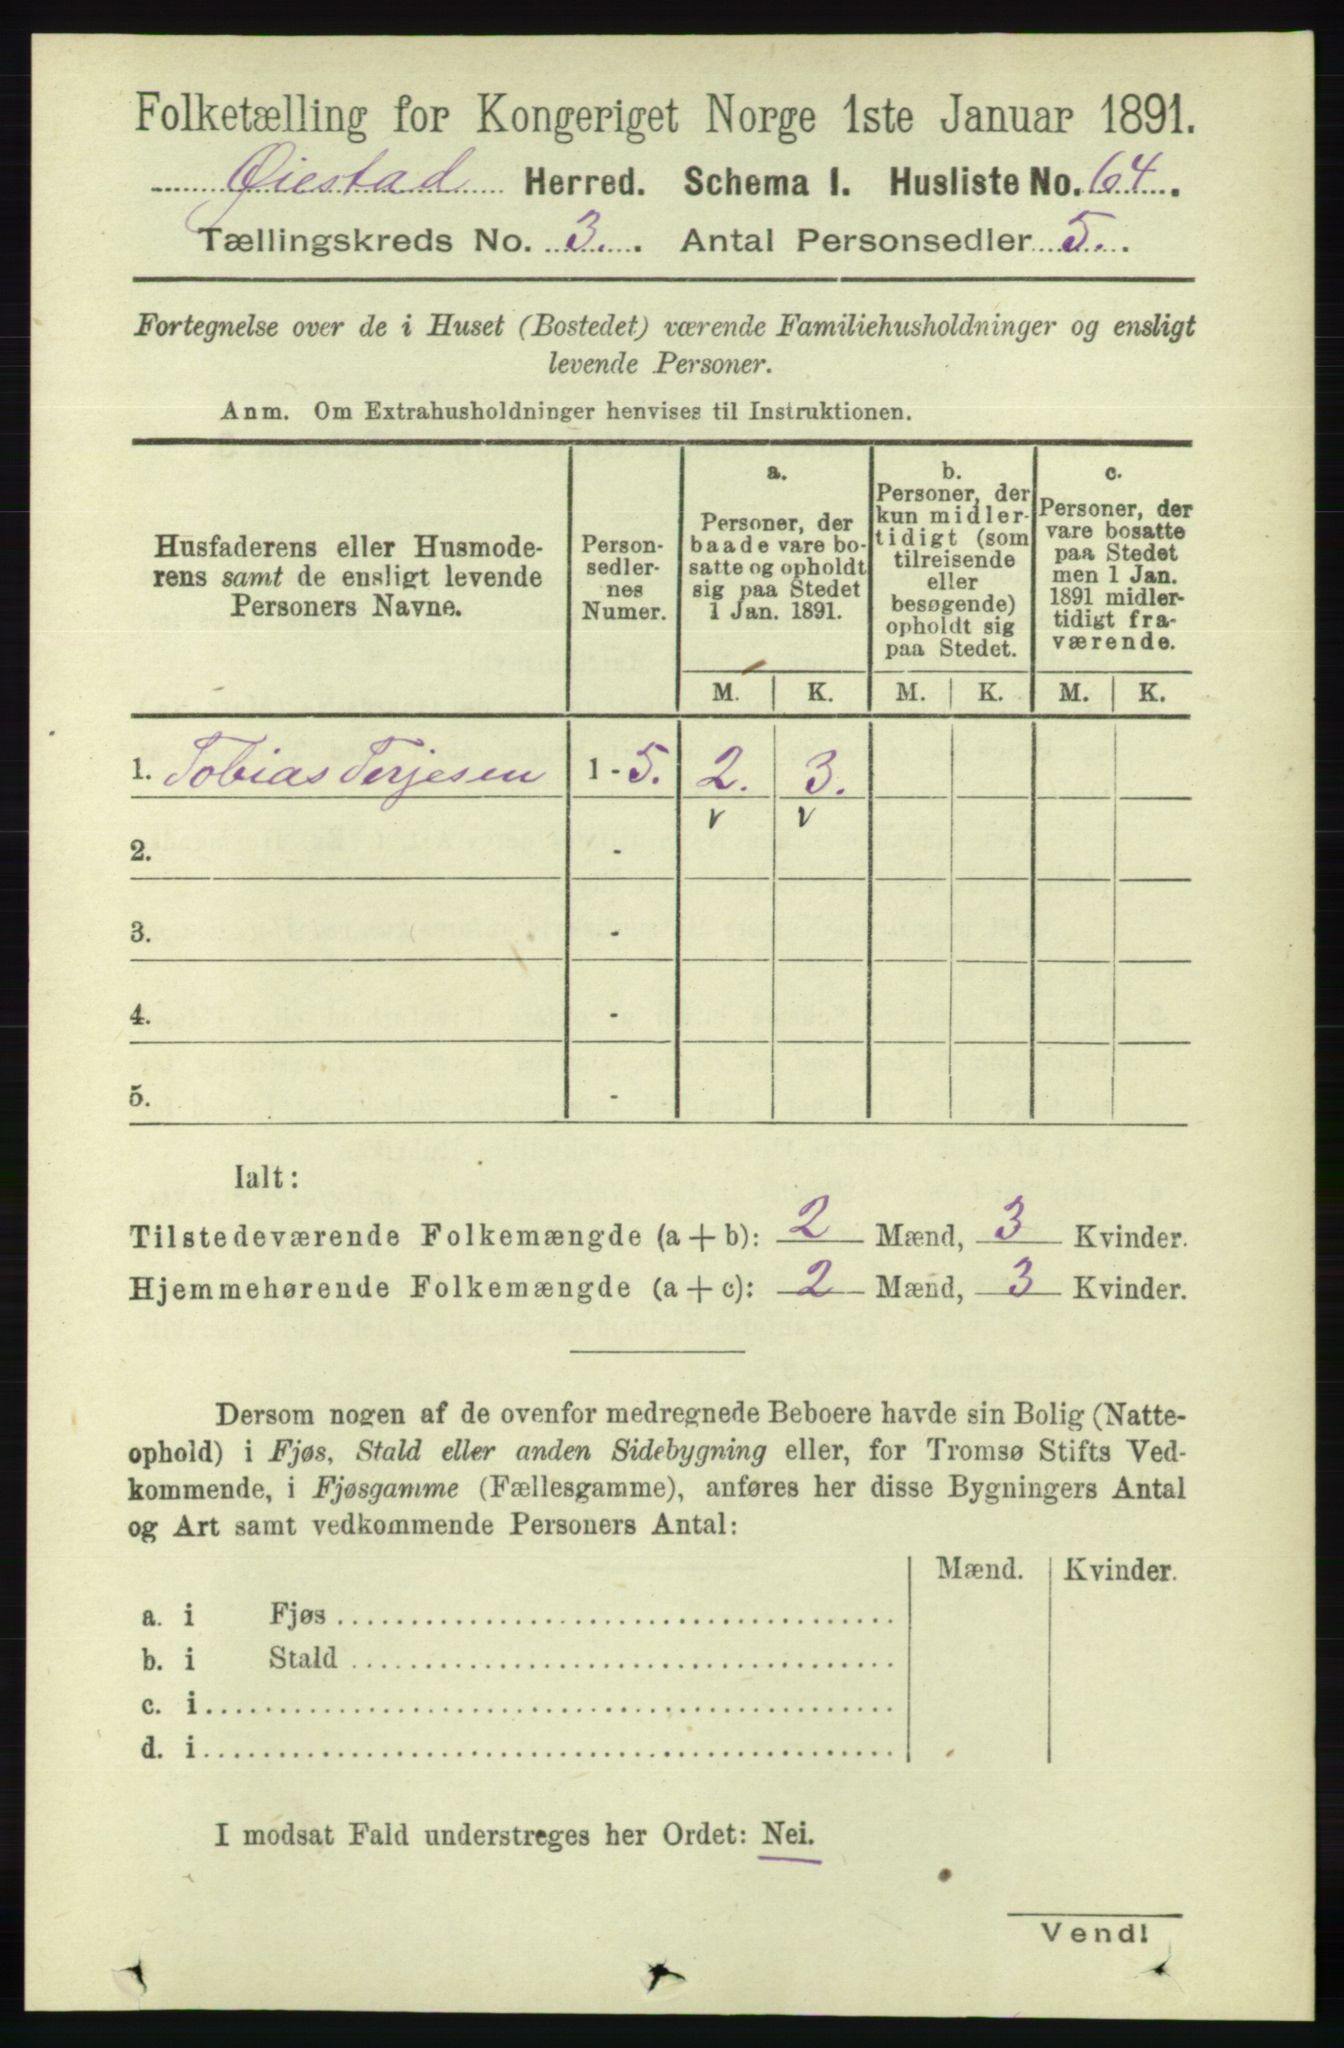 Folketælling for Kongeriget Norge 1ste Januar 1891.
Øiestad Herred. Schema I. Husliste No. 64.
Tællingskreds No. 3. Antal Personsedler 5.
Fortegnelse over de i Huset (Bostedet) værende Familiehusholdninger og ensligt
levende Personer.
Anm. Om Extrahusholdninger henvises til Instruktionen.
Husfaderens eller Husmode-
rens samt de ensligt levende
Personers Navne.
Person-
sedler-
nes
Numer.
a.
Personer, der
baade vare bo-
satte og opholdt
sig paa Stedet
1 Jan. 1891.
b.
Personer, der
kun midler-
tidigt (som
tilreisende
eller
besøgende)
opholdt sig
paa Stedet.
c.
Personer, der
vare bosatte
paa Stedet
men 1 Jan.
1891 midler-
tidigt fra-
værende.
M. K. M. K. M. K.
1. Tobias Terjesen 1 - 5. 2. 3.
v v
2. -
3. -
4. -
5. -
Ialt:
Tilstedeværende Folkemængde (a + b): 2 Mænd, 3 Kvinder.
Hjemmehørende Folkemængde (a + c): 2 Mænd, 3 Kvinder.
Dersom nogen af de ovenfor medregnede Beboere havde sin Bolig (Natte-
ophold) i Fjøs, Stald eller anden Sidebygning eller, for Tromsø Stifts Ved-
kommende, i Fjøsgamme (Fællesgamme), anføres her disse Bygningers Antal
og Art samt vedkommende Personers Antal:
Mænd. Kvinder.
a. i Fjøs
b. i Stald
c. i
d. i
I modsat Fald understreges her Ordet: Nei.
Vend!